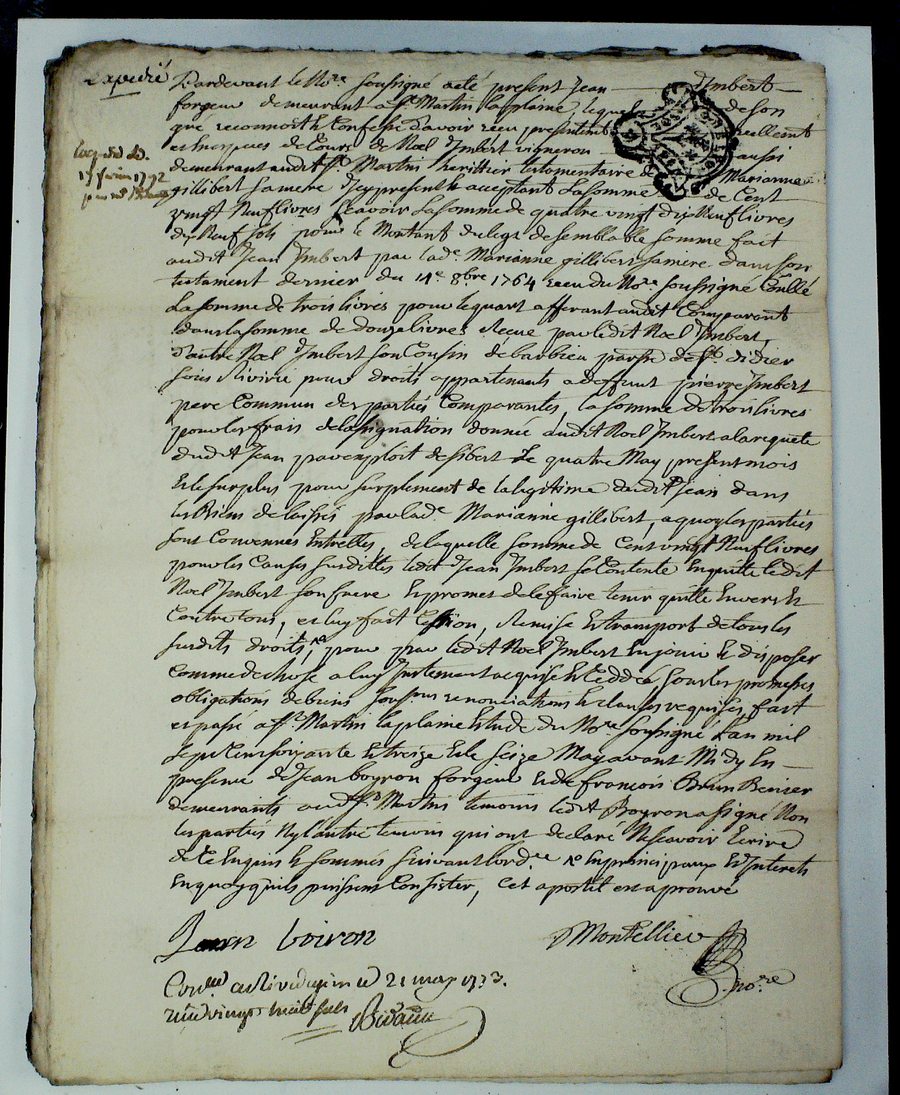 Expedié
Pardevant le No.re soussigné acté present Jean Imbert
forgeur demeurant a St. Martin la plaine lequel de son
gré reconnoit & Confesse d'avoir receu presentement reellement
et en especes de Cours de Noel Imbert vigneron aussi
demeurant audit St. Martin heritier testamentaire de Marianne
gillibert sa mere Icy present & acceptant La somme de Cent
vingt Neuf livres Scavoir La somme de quatre vingt dix Neuf livres
dix Neuf sols pour le Montant du legs de semblable somme fait
audit Jean Imbert par lade. Marianne gillibert sa mere dans son
testament dernier du 14e. 8bre 1764 receu du No.re soussigné Conllé
La somme de trois livres pour le quart afferant audit Comparant
dans la somme de douze livres Receue par ledit Noel Imbert
d'autre Noel Imbert son Cousin de barbieu parsse de St. didier
sous Rivirie pour droits appartenants a deffunt pierre Imbert
pere Commun des parties Comparantes, la somme de trois livres
pour les frais de lassignation donnée audit Noel Imbert a la requete
dudit Jean par exploit de sibert Le quatre May present mois
Et le surplus pour surplement de la legitime dudit Jean dans
les Biens delaissés par lade. Marianne gillibert, a quoy les parties
sont Convenues Entrelles, de laquelle somme de Cent vingt Neuf livres
pour les Causes susdittes ledit Jean Imbert se Contente En quitte ledit
Noel Imbert son frere En promet de le faire tenir quitte Envers &
Contre tous, et luy fait Cession, Remise Et transport de tous les
susdits droits, pour par ledit Noel Imbert En jouir & disposer
Comme de chose a luy Justement acquise & Ceddée sous les promesses
obligations de biens sous renonciations & clauses requises, fait
et passé a St. Martin la plaine Etude du No.re soussigné L'an mil
sept Cent soixante Et treize Et le seize May avant Midy En
presence de Jean boyron forgeur Et de françois Brun
demeurants audit St. Martin temoins ledit Boyron a signé Non
les parties Ny l'autre temoin qui ont declaré Ne scavoir Ecrire
de Ce Enquis & sommés suivant lordce. En principaux Et Interets
En quoy quils puissent Consister, Cet apostil est aprouvé
Jean boiron
Montellier
No.re
Conllé a Rivedegier le 21 may 1773.
Receu vingt huit sols